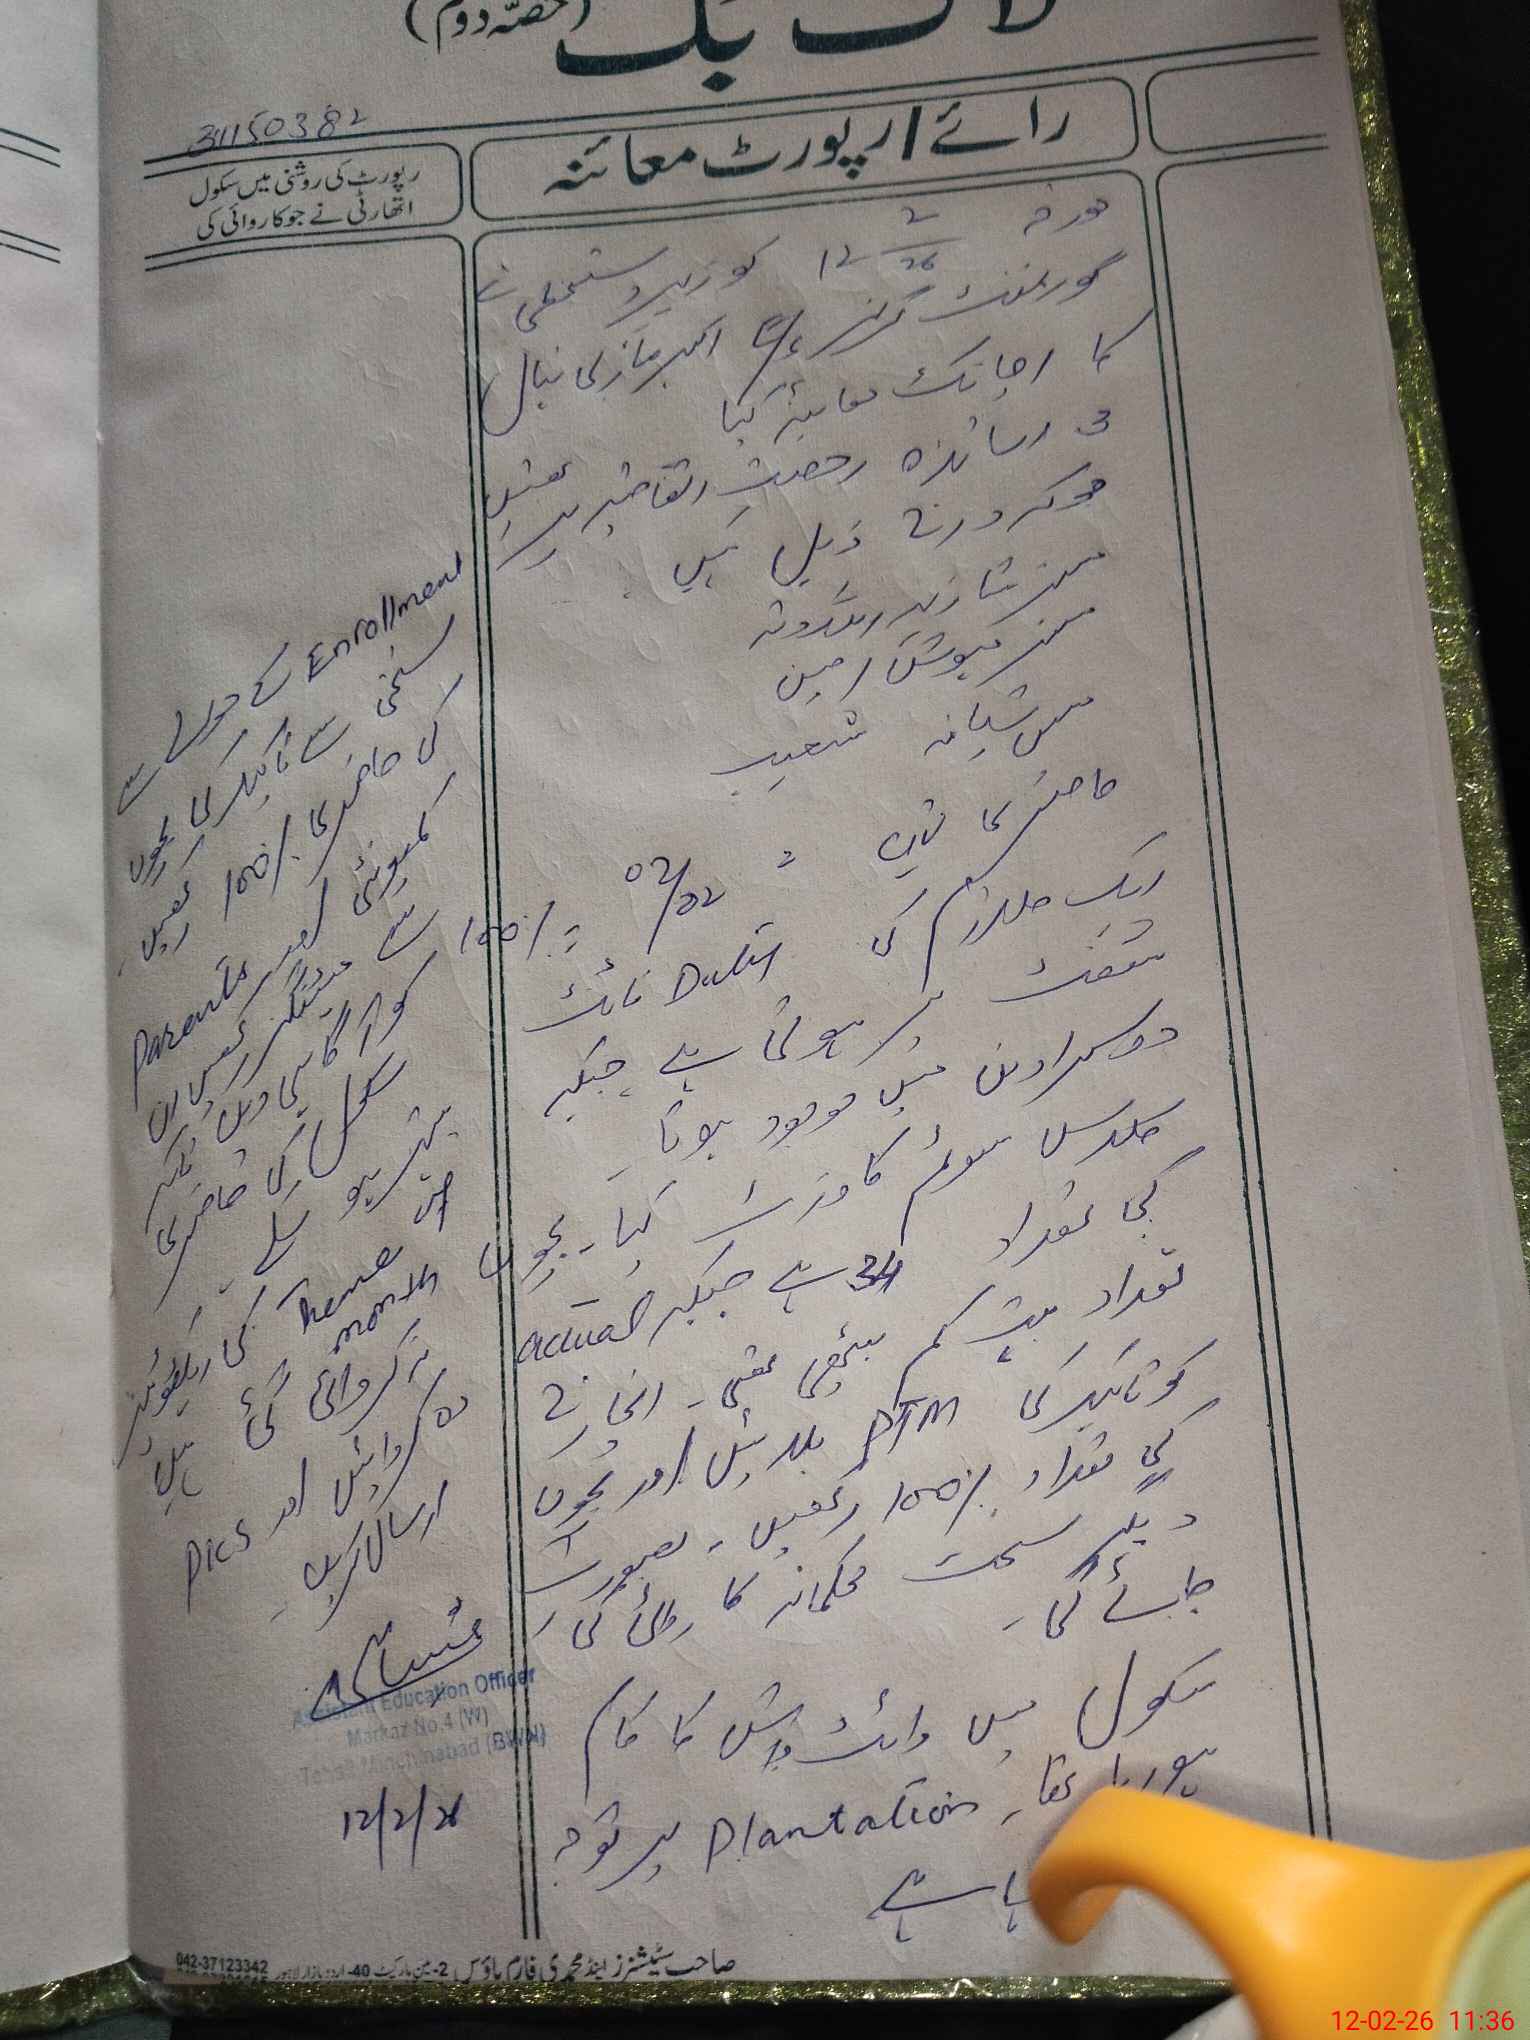 لاگ بک (حصّہ دوم)
31150382
رائے / رپورٹ معائنہ
رپورٹ کی روشنی میں سکول
اتھارٹی نے جو کاروائی کی
مورخہ 12 2/26 کو زیر دستخطی نے
گورنمنٹ گرلز
کا اچانک معائنہ کیا
3 اساتذہ رخصت اتفاقیہ پر تھیں
جو کہ درج ذیل ہیں
مس شازیہ
مس مہوش امین
مس شبانہ شعیب
حاضری کا تناسب = 02/02 = 100%
ایک ملازم کی Duty نائٹ
شفٹ پر ہوتی ہے جبکہ
دوسرا دن میں موجود ہوتا۔
کلاس سوئم کا وزٹ کیا۔ بچوں
کی تعداد 34 ہے جبکہ actual
تعداد بہت کم بیٹھی تھی۔ انچارج
کو تاکید کی PTM بلائیں اور بچوں
کی تعداد 100% رکھیں۔ بصورت
دیگر سخت محکمانہ کاروائی کی
جائے گی۔
سکول میں وائٹ واش کا کام
ہو رہا تھا۔ Plantation پر توجہ
ہے
Enrollment کے حوالے سے
سختی سے تاکید کی بچوں
کی حاضری 100% رکھیں۔
کمیونٹی اور Parents
سے میٹنگز رکھیں ان
کو آگاہی دیں تاکہ
سکول کی حاضری
بہتر ہو سکے۔
Theme month
نہ کروائی گئی ہیں
وہ کروائیں اور Pics
ارسال کریں۔
Assistant Education Officer
Markaz No.4 (W)
Tehsil Minchinabad (BWN)
12/2/26
صاحب سٹیشنرز اینڈ محمدی فارم ہاؤس 2-مین مارکیٹ 40-اردو بازار لاہور 042-37123342
12-02-26 11:36